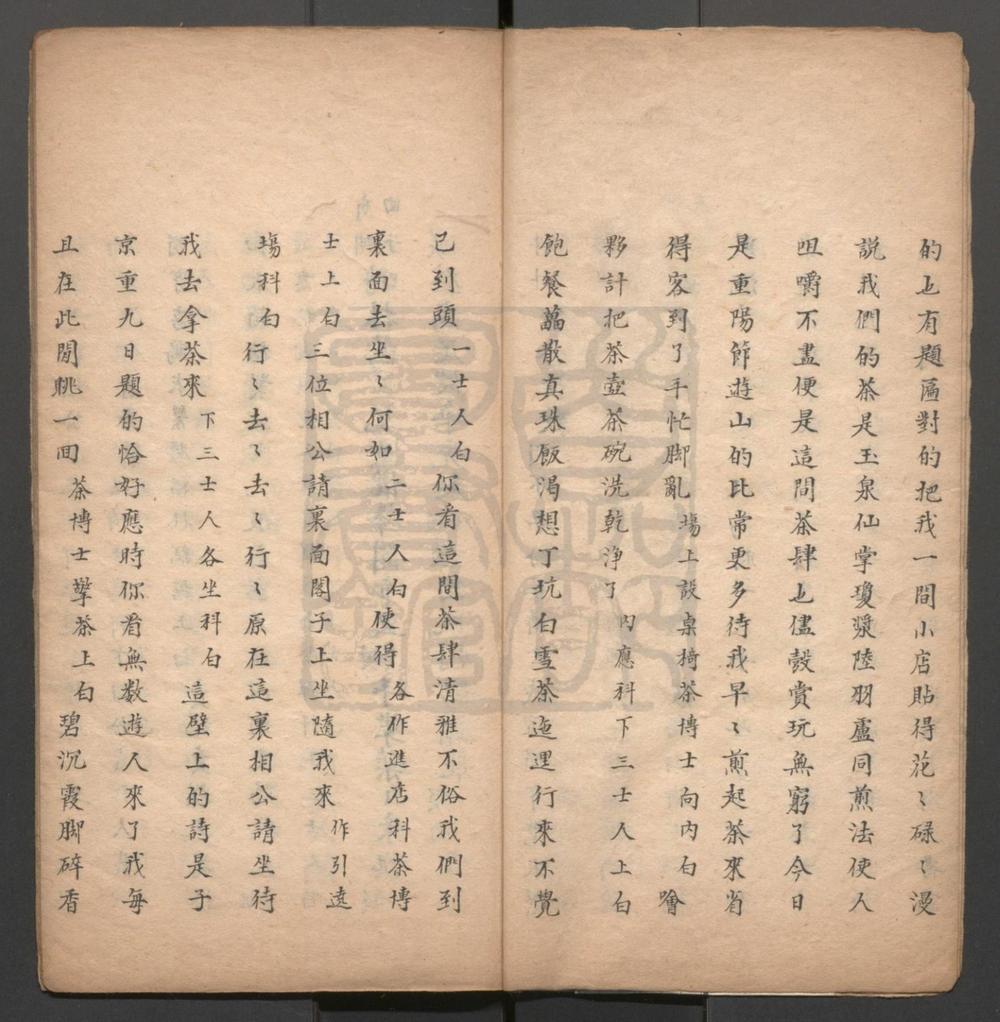 的乜有題匾對的把我一間小店貼得花〻碌〻漫
説我們的茶是玉泉仙掌瓊漿陸羽盧同煎法使人
咀嚼不盡便是這間茶肆乜儘彀賞玩無窮了今日
是重陽節遊山的比常更多待我早〻煎起茶來省
得客到了手忙脚亂塲上設桌椅茶博士向内白嚐
夥計把茶壺茶碗洗乾淨了内應科下三士人上白
飽餐蕌散真珠飯渴想丁坑白雪茶迤逕行來不覺
已到頭一士人白你看這間茶肆清雅不俗我們到
裏面去坐〻何如二士人白使得各作進店科茶博
士上白三位相公請裏面閣子上坐隨我來作引遶
塲科白行〻去〻去〻行〻原在這裏相公請坐待
我去拿茶來下三士人各坐科白這壁上的詩是子
京重九日題的恰好應時你看無数遊人來了我每
且在此閒眺一回茶博士擎茶上白碧沉霞脚碎香